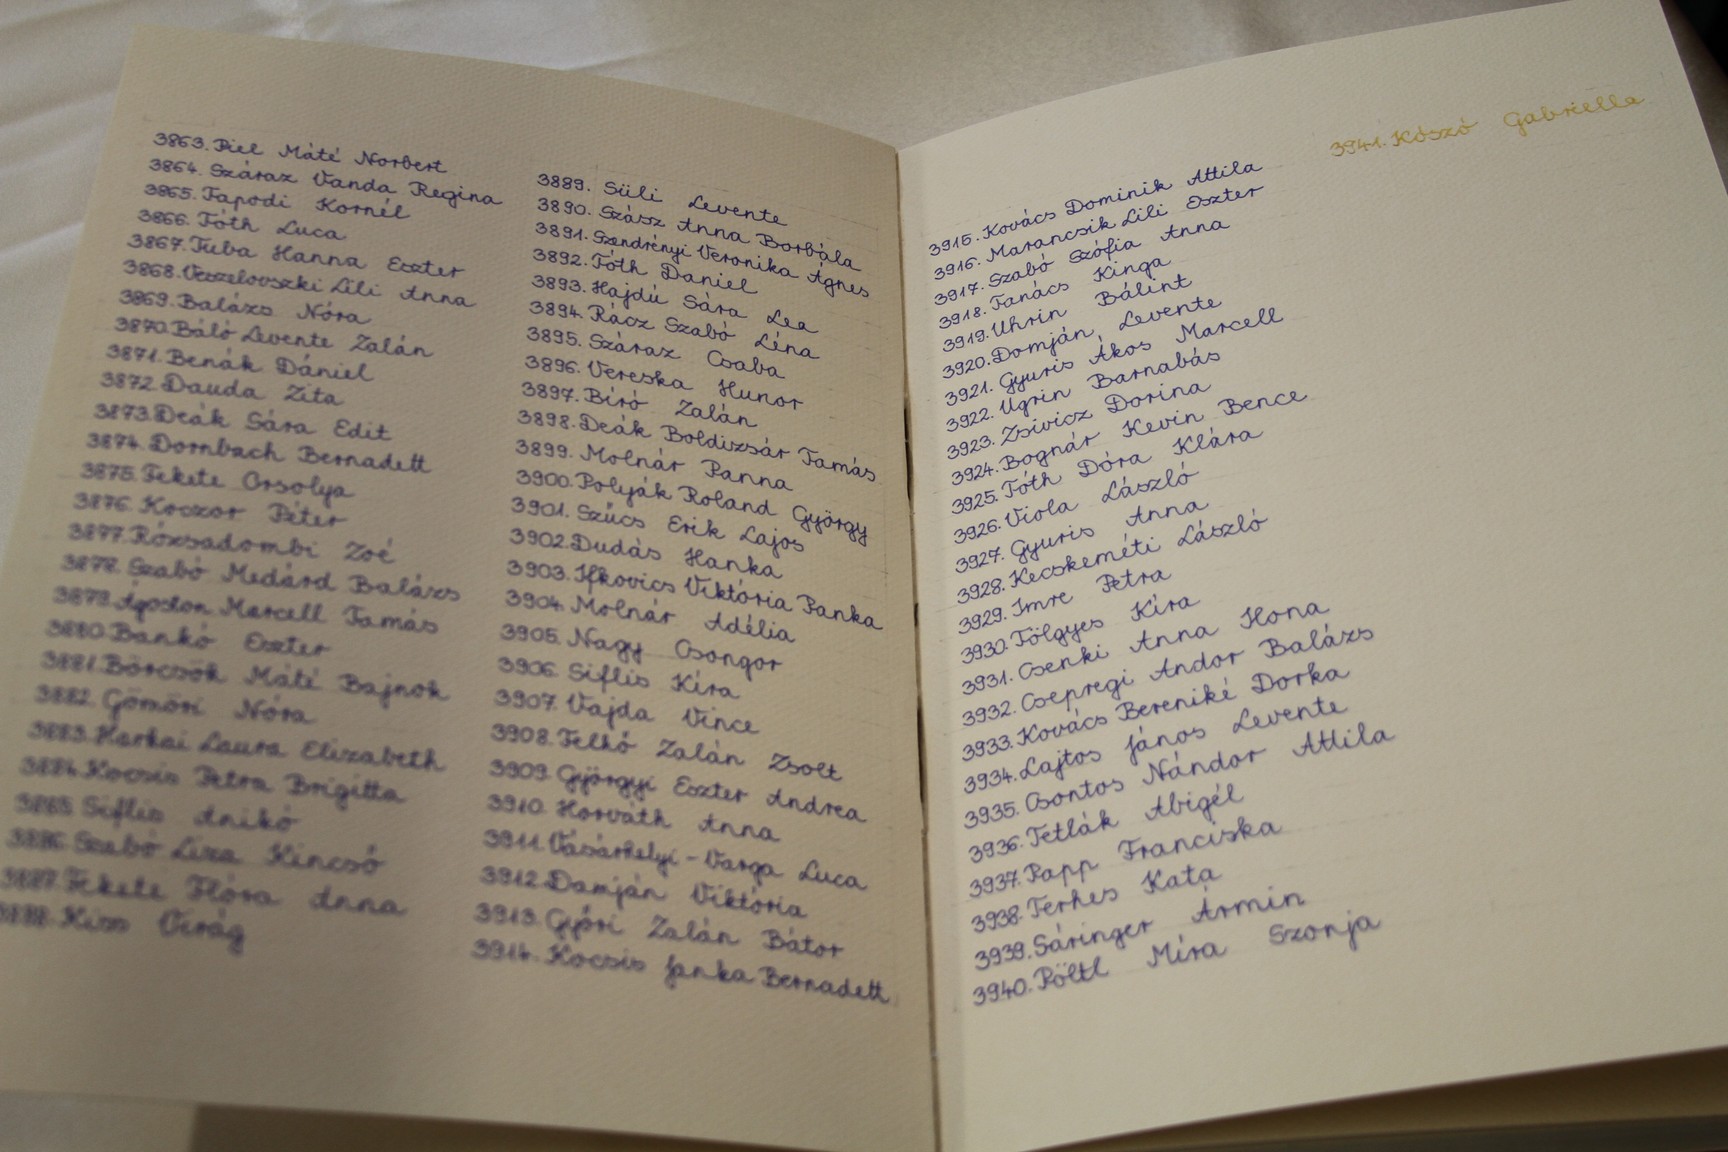 3863. Piel Máté Norbert
3864. Száraz Vanda Regina
3865. Tapodi Kornél
3866. Tóth Luca
3867. Tuba Hanna Eszter
3868. Veszelovszki Lili Anna
3869. Balázs Nóra
3870. Báló Levente Zalán
3871. Benák Dániel
3872. Dauda Zita
3873. Deák Sára Edit
3874. Dornbach Bernadett
3875. Fekete Orsolya
3876. Koczor Péter
3877. Rózsadombi Zoé
3878. Szabó Medárd Balázs
3879. Ágoston Marcell Tamás
3880. Bankó Eszter
3881. Börcsök Máté Bajnok
3882. Gömöri Nóra
3883. Harkai Laura Elizabeth
3884. Kocsis Petra Brigitta
3885. Siflis Anikó
3886. Szabó Liza Kincső
3887. Fekete Flóra Anna
3888. Kiss Virág
3889. Süli Levente
3890. Szász Anna Borbála
3891. Szendrényi Veronika Ágnes
3892. Tóth Daniel
3893. Hajdú Sára Lea
3894. Rácz Szabó Léna
3895. Száraz Csaba
3896. Vereska Hunor
3897. Bíró Zalán
3898. Deák Boldizsár Tamás
3899. Molnár Panna
3900. Polyák Roland György
3901. Szűcs Erik Lajos
3902. Dudás Hanka
3903. Ifkovics Viktória Panka
3904. Molnár Adélia
3905. Nagy Csongor
3906. Siflis Kíra
3907. Vajda Vince
3908. Telkó Zalán Zsolt
3909. Györgyi Eszter Andrea
3910. Horváth Anna
3911. Vásárhelyi-Varga Luca
3912. Damján Viktória
3913. Győri Zalán Bátor
3914. Kocsis Janka Bernadett
3915. Kovács Dominik Attila
3916. Marancsik Lili Eszter
3917. Szabó Szófia Anna
3918. Tanács Kinga
3919. Uhrin Bálint
3920. Domján Levente
3921. Gyuris Ákos Marcell
3922. Ugrin Barnabás
3923. Zsivicz Dorina
3924. Bognár Kevin Bence
3925. Tóth Dóra Klára
3926. Viola László
3927. Gyuris Anna
3928. Kecskeméti László
3929. Imre Petra
3930. Fölgyes Kíra
3931. Csenki Anna Ilona
3932. Csepregi Andor Balázs
3933. Kovács Bereniké Dorka
3934. Lajtos János Levente
3935. Csontos Nándor Attila
3936. Tetlák Abigél
3937. Papp Franciska
3938. Terhes Kata
3939. Sáringer Ármin
3940. Pöltl Míra Szonja
3941. Kószó Gabriella